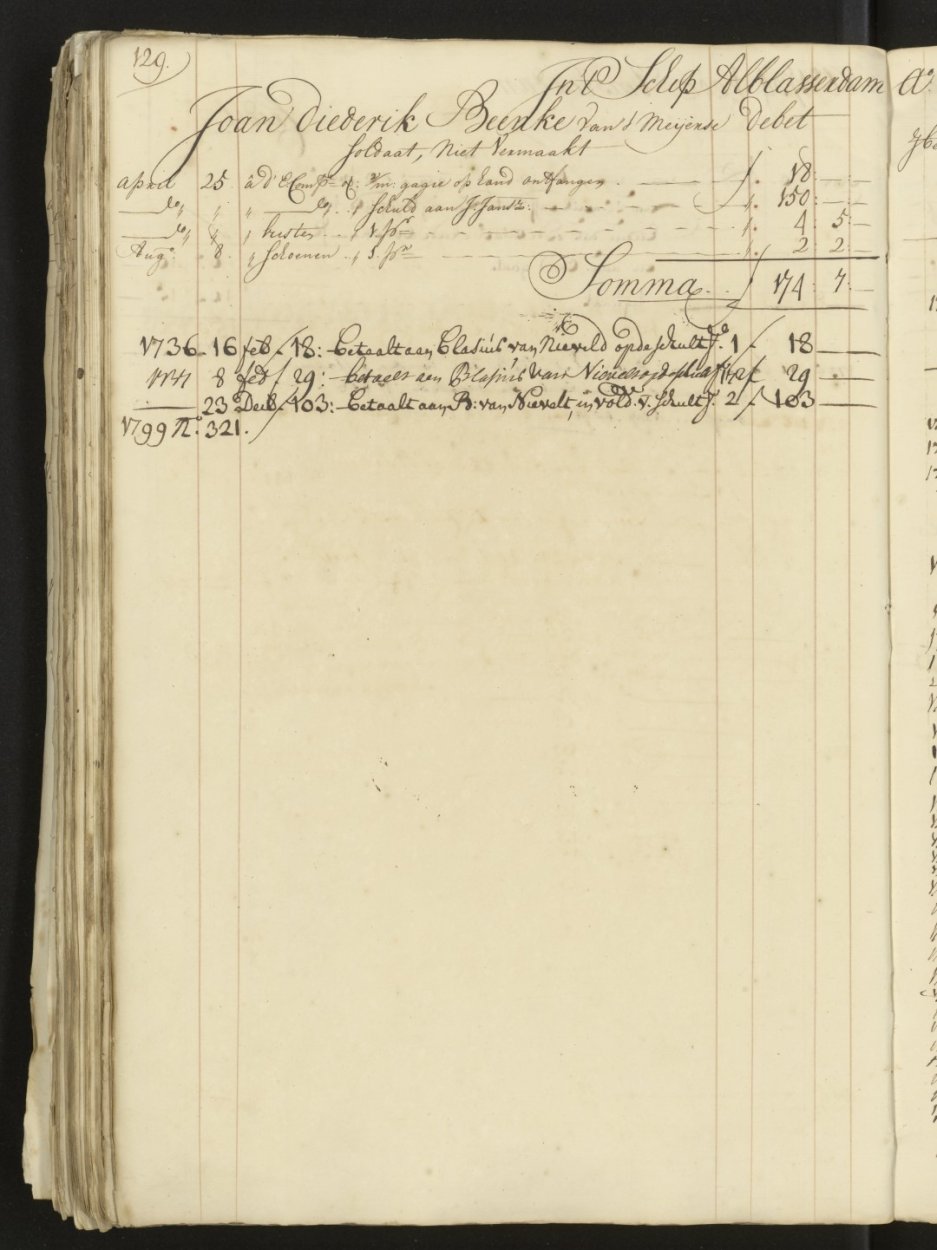 129.
Int Schip Alblasserdam Aº
Joan Diederik Beenke van Meijense Debet
Soldaat, Niet Vermaakt
april 25 â d' E Comp: 2/m: gagie op hand ontfangen ƒ 18: —
dº " " dº " schuld aan 150: —
dº " " kister " 1 ps " 4: 5: —
Augº 8 " schoenen " 1 pr " 2: 2: —
Somma ƒ 174: 7: —
1736 - 16 feb ƒ 18: - betaalt aan Blasius van Nieveld op de schult fº 1 ƒ 18 —
8 feb ƒ 29: - betaelt aen Blasius van 29 —
— 23 Decb ƒ 103: - betaalt aan B: van Nievelt, in vold. v. schult fº 2 ƒ 103 —
1799 Nº 321.